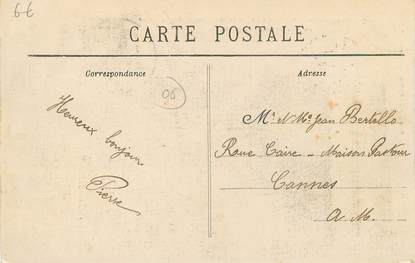 6€
CARTE POSTALE
Correspondance
Adresse
06
Heureux bonjour
Pierre
Mr & Me Jean Bertello
Rue Caire - Maison Pastour
Cannes
A. M.